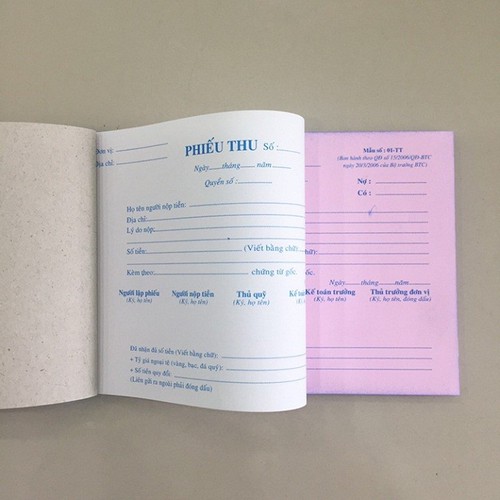 Đơn vị:
Địa chỉ:
PHIẾU THU Số :
Ngày......tháng......năm......
Quyển số :
Họ tên người nộp tiền:
Địa chỉ:
Lý do nộp:
Số tiền: (Viết bằng chữ):
Kèm theo: chứng từ gốc.
Người lập phiếu Người nộp tiền Thủ quỹ Kế
(Ký, họ tên) (Ký, họ tên) (Ký, họ tên)
Đã nhận đủ số tiền (Viết bằng chữ):
+ Tỷ giá ngoại tệ (vàng, bạc, đá quý):
+ Số tiền quy đổi:
(Liên gửi ra ngoài phải đóng dấu)
Mẫu số : 01-TT
(Ban hành theo QĐ số 15/2006/QĐ-BTC
ngày 20/3/2006 của Bộ trưởng BTC)
Nợ :
Có :
chữ):
gốc.
Ngày......tháng......năm......
Kế toán trưởng Thủ trưởng đơn vị
(Ký, họ tên) (Ký, họ tên, đóng dấu)